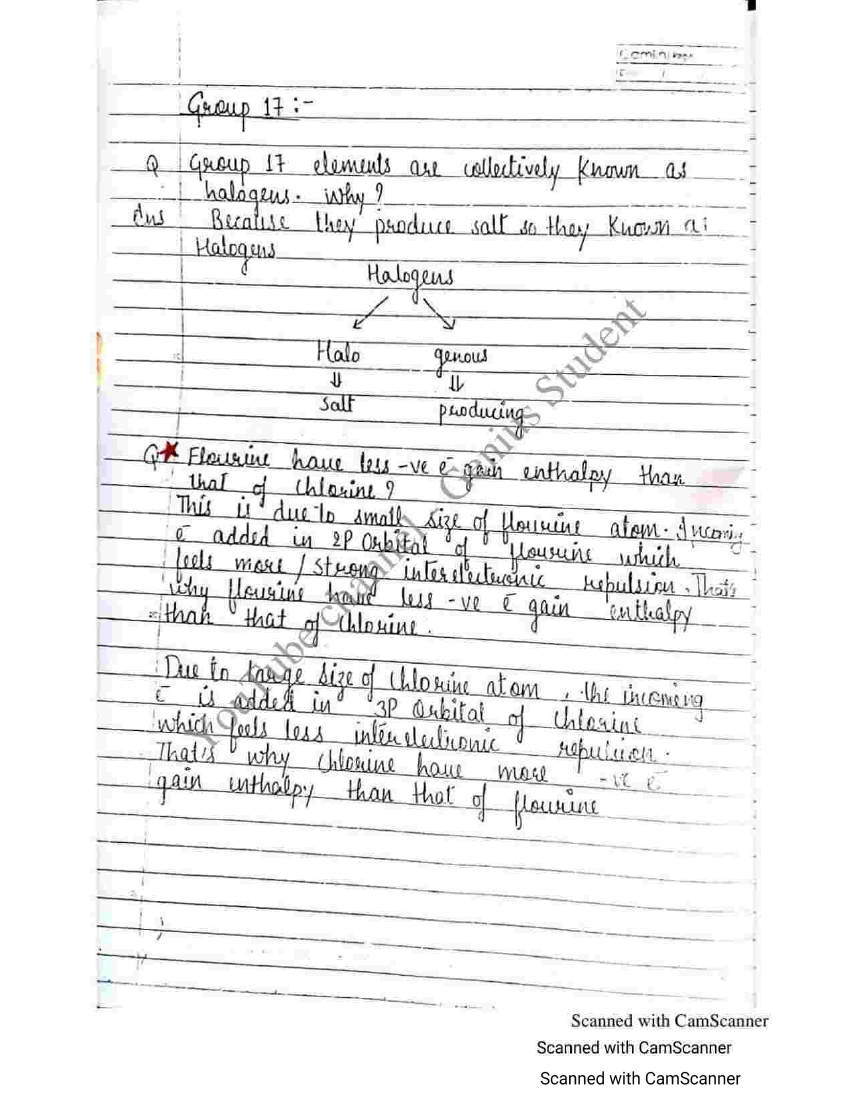 Group 17 :-
Q Group 17 elements are collectively Known as
halogens. Why ?
Ans Because they produce salt so they Known as
Halogens
Halogens
Halo genous
⇓ ⇓
salt producing
Q ★ Flourine have less -ve ē gain enthalpy than
that of Chlorine ?
This is due to small size of flourine atom. Incoming
ē added in 2P Orbital of flourine which
feels more / strong interelectronic repulsion. That's
why flourine have less -ve ē gain enthalpy
than that of Chlorine.
Due to large size of Chlorine atom, the incoming
ē is added in 3P Orbital of Chlorine
which feels less interelectronic repulsion.
That's why Chlorine have more -ve ē
gain enthalpy than that of flourine
YouTube channel Genius Student
Scanned with CamScanner
Scanned with CamScanner
Scanned with CamScanner